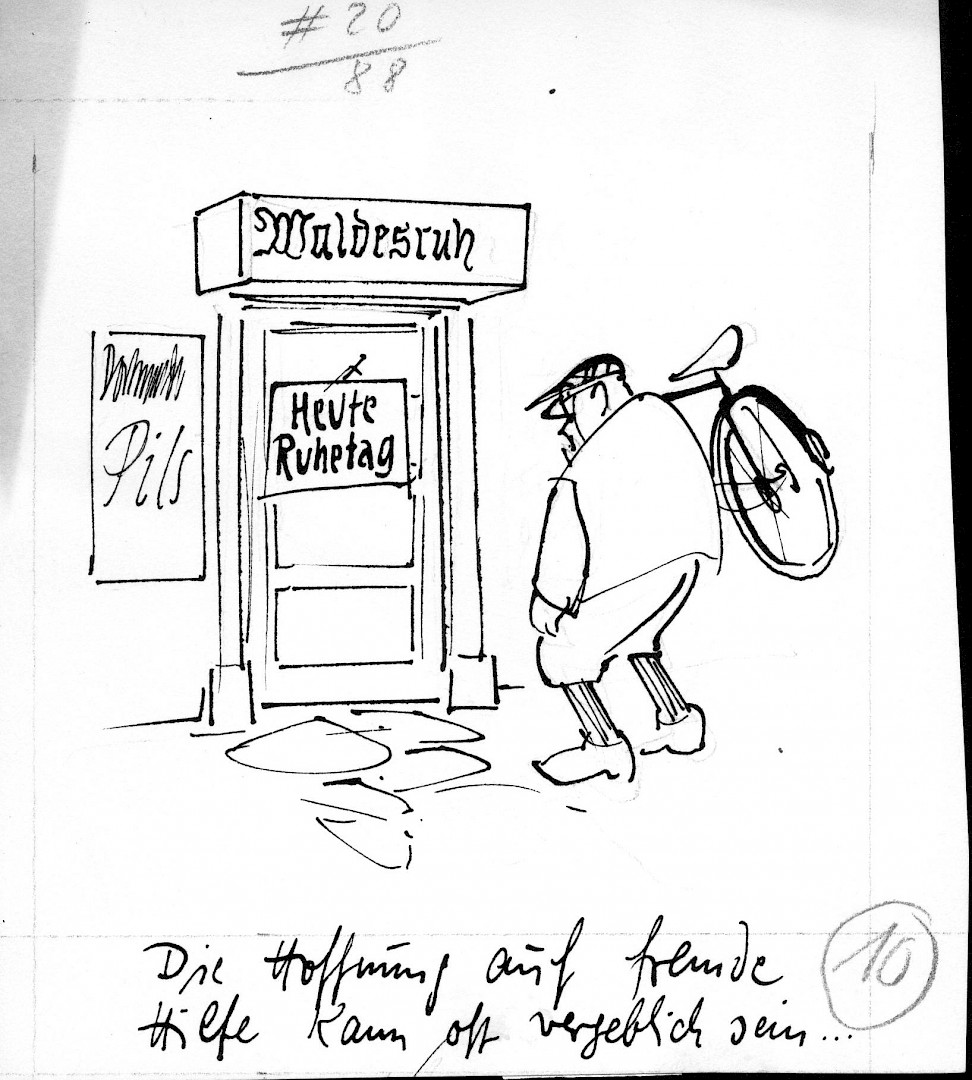 # 20
88
Waldesruh
Pils
Heute
Ruhetag
Die Hoffnung auf fremde
Hilfe kann oft vergeblich sein...
10